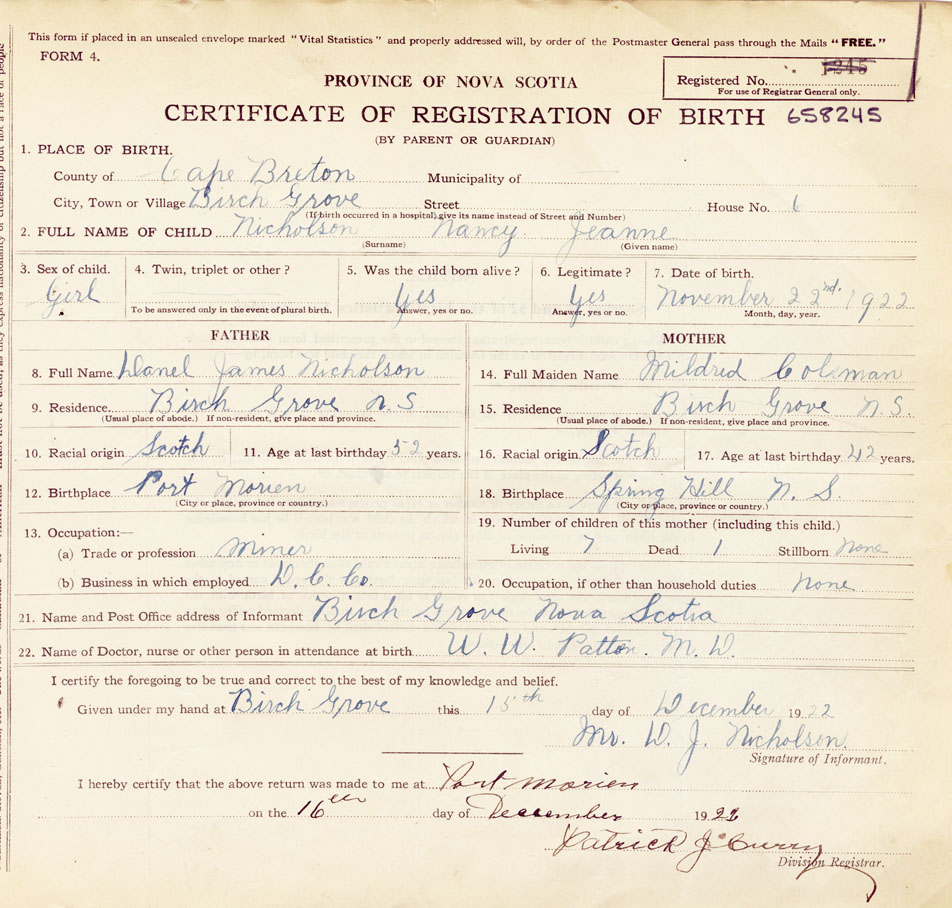 This form if placed in an unsealed envelope marked "Vital Statistics" and properly addressed will, by order of the Postmaster General pass through the Mails "FREE."
FORM 4.
PROVINCE OF NOVA SCOTIA
Registered No. 1245
For use of Registrar General only.
CERTIFICATE OF REGISTRATION OF BIRTH 658245
(BY PARENT OR GUARDIAN)
1. PLACE OF BIRTH.
County of Cape Breton Municipality of
City, Town or Village Birch Grove Street House No. 6
(If birth occurred in a hospital, give its name instead of Street and Number)
2. FULL NAME OF CHILD Nicholson Nancy Jeanne
(Surname) (Given name)
3. Sex of child. 4. Twin, triplet or other? 5. Was the child born alive? 6. Legitimate? 7. Date of birth.
Girl Yes Yes November 22nd. 1922
To be answered only in the event of plural birth. Answer, yes or no. Answer, yes or no. Month, day, year.
FATHER
8. Full Name Danel James Nicholson
9. Residence Birch Grove N.S
(Usual place of abode.) If non-resident, give place and province.
10. Racial origin Scotch 11. Age at last birthday 52 years.
12. Birthplace Port Morien
(City or place, province or country.)
13. Occupation:—
(a) Trade or profession Miner
(b) Business in which employed D. C. Co.
MOTHER
14. Full Maiden Name Mildred Coleman
15. Residence Birch Grove N.S.
(Usual place of abode.) If non-resident, give place and province.
16. Racial origin Scotch 17. Age at last birthday 42 years.
18. Birthplace Spring Hill N. S.
(City or place, province or country.)
19. Number of children of this mother (including this child.)
Living 7 Dead 1 Stillborn None
20. Occupation, if other than household duties none
21. Name and Post Office address of Informant Birch Grove Nova Scotia
22. Name of Doctor, nurse or other person in attendance at birth W. W. Patton. M. D.
I certify the foregoing to be true and correct to the best of my knowledge and belief.
Given under my hand at Birch Grove this 15th day of December 1922
Mr. D. J. Nicholson.
Signature of Informant.
I hereby certify that the above return was made to me at Port Morien
on the 16th day of December 1922
Patrick J Curry
Division Registrar.